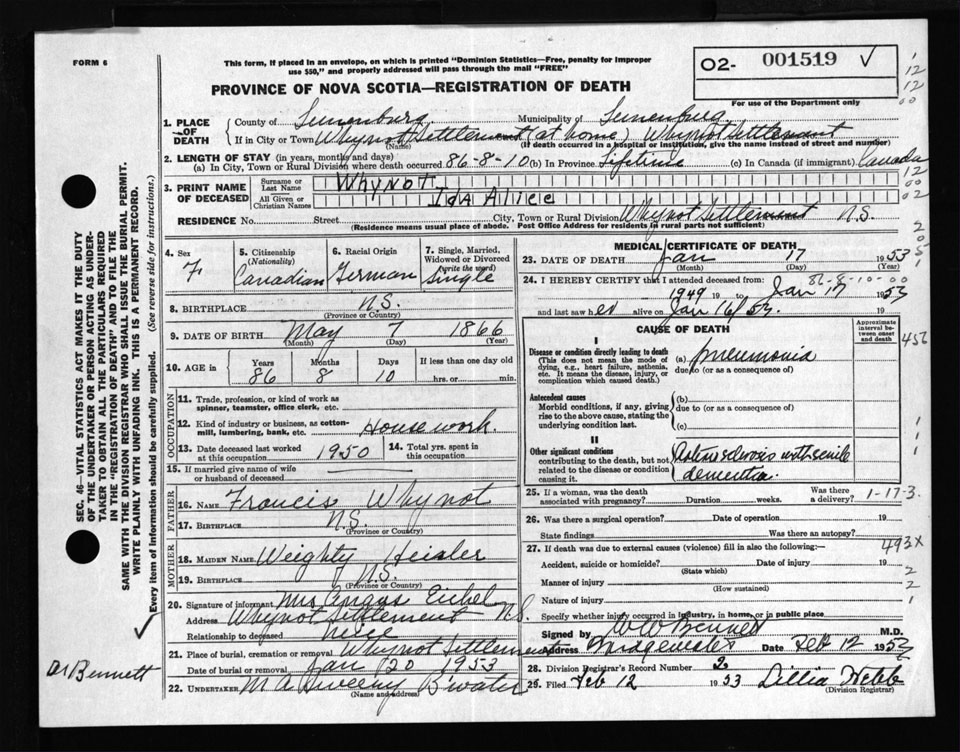 FORM 6
This form, if placed in an envelope, on which is printed "Dominion Statistics—Free, penalty for improper
use $50," and properly addressed will pass through the mail "FREE"
O2- 001519 ✓
PROVINCE OF NOVA SCOTIA—REGISTRATION OF DEATH
For use of the Department only
1. PLACE OF DEATH
County of Lunenburg. Municipality of Lunenburg.
If in City or Town Whynot Settlement (at home) Whynot Settlement
(Name) (If death occurred in a hospital or institution, give the name instead of street and number)
2. LENGTH OF STAY (in years, months and days)
(a) In City, Town or Rural Division where death occurred 86-8-10 (b) In Province Lifetime (c) In Canada (if immigrant) Canada
3. PRINT NAME OF DECEASED
Surname or Last Name Whynot
All Given or Christian Names Ida Alice
RESIDENCE No. Street City, Town or Rural Division Whynot Settlement N.S.
(Residence means usual place of abode. Post Office Address for residents in rural parts not sufficient)
4. Sex F
5. Citizenship (Nationality) Canadian
6. Racial Origin German
7. Single, Married, Widowed or Divorced (write the word) Single
8. BIRTHPLACE N.S.
(Province or Country)
9. DATE OF BIRTH May 7 1866
(Month) (Day) (Year)
10. AGE in Years 86 Months 8 Days 10 If less than one day old hrs. or min.
OCCUPATION
11. Trade, profession, or kind of work as spinner, teamster, office clerk, etc.
12. Kind of industry or business, as cotton-mill, lumbering, bank, etc. Housework.
13. Date deceased last worked at this occupation 1950
14. Total yrs. spent in this occupation
15. If married give name of wife or husband of deceased
FATHER
16. NAME Francis Whynot
17. BIRTHPLACE N.S.
(Province or Country)
MOTHER
18. MAIDEN NAME Weighty Heisler
19. BIRTHPLACE N.S.
(Province or Country)
20. Signature of informant Mrs Angus Eikel
Address Whynot Settlement N.S.
Relationship to deceased niece
21. Place of burial, cremation or removal Whynot Settlement
Date of burial or removal Jan 20 1953
22. UNDERTAKER M A Sweeny B'water
(Name and address)
MEDICAL CERTIFICATE OF DEATH
23. DATE OF DEATH Jan 17 1953
(Month) (Day) (Year)
86-8-10-00
24. I HEREBY CERTIFY that I attended deceased from:
1949 19 to Jan 17 1953
and last saw h er alive on Jan 16/53. 19
CAUSE OF DEATH
Approximate interval between onset and death
I
Disease or condition directly leading to death
(This does not mean the mode of dying, e.g., heart failure, asthenia, etc. It means the disease, injury, or complication which caused death.)
(a) pneumonia
due to (or as a consequence of)
Antecedent causes
Morbid conditions, if any, giving rise to the above cause, stating the underlying condition last.
(b)
due to (or as a consequence of)
(c)
II
Other significant conditions
contributing to the death, but not related to the disease or condition causing it.
Arteriosclerosis with senile
dementia.
25. If a woman, was the death associated with pregnancy? Duration weeks. Was there a delivery?
26. Was there a surgical operation? Date of operation 19
State findings Was there an autopsy?
27. If death was due to external causes (violence) fill in also the following:—
Accident, suicide or homicide? Date of injury 19
(State which)
Manner of injury
(How sustained)
Nature of injury
Specify whether injury occurred in industry, in home, or in public place
Signed by W W Bennett M.D.
Address Bridgewater Date Feb 12 1953
28. Division Registrar's Record Number 2
29. Filed Feb 12 1953 Lillia Webb
(Division Registrar)
SEC. 46—VITAL STATISTICS ACT MAKES IT THE DUTY
OF THE UNDERTAKER OR PERSON ACTING AS UNDER-
TAKER TO OBTAIN ALL THE PARTICULARS REQUIRED
IN THE "REGISTRATION OF DEATH" AND TO FILE THE
SAME WITH THE DIVISION REGISTRAR WHO SHALL ISSUE THE BURIAL PERMIT.
WRITE PLAINLY WITH UNFADING INK. THIS IS A PERMANENT RECORD.
Every item of information should be carefully supplied. (See reverse side for instructions.)
✓
Dr Bennett
1
12
12
00
12
00
02
2
0
5
1
456
1
1
1
1-17-3.
493X
2
2
1